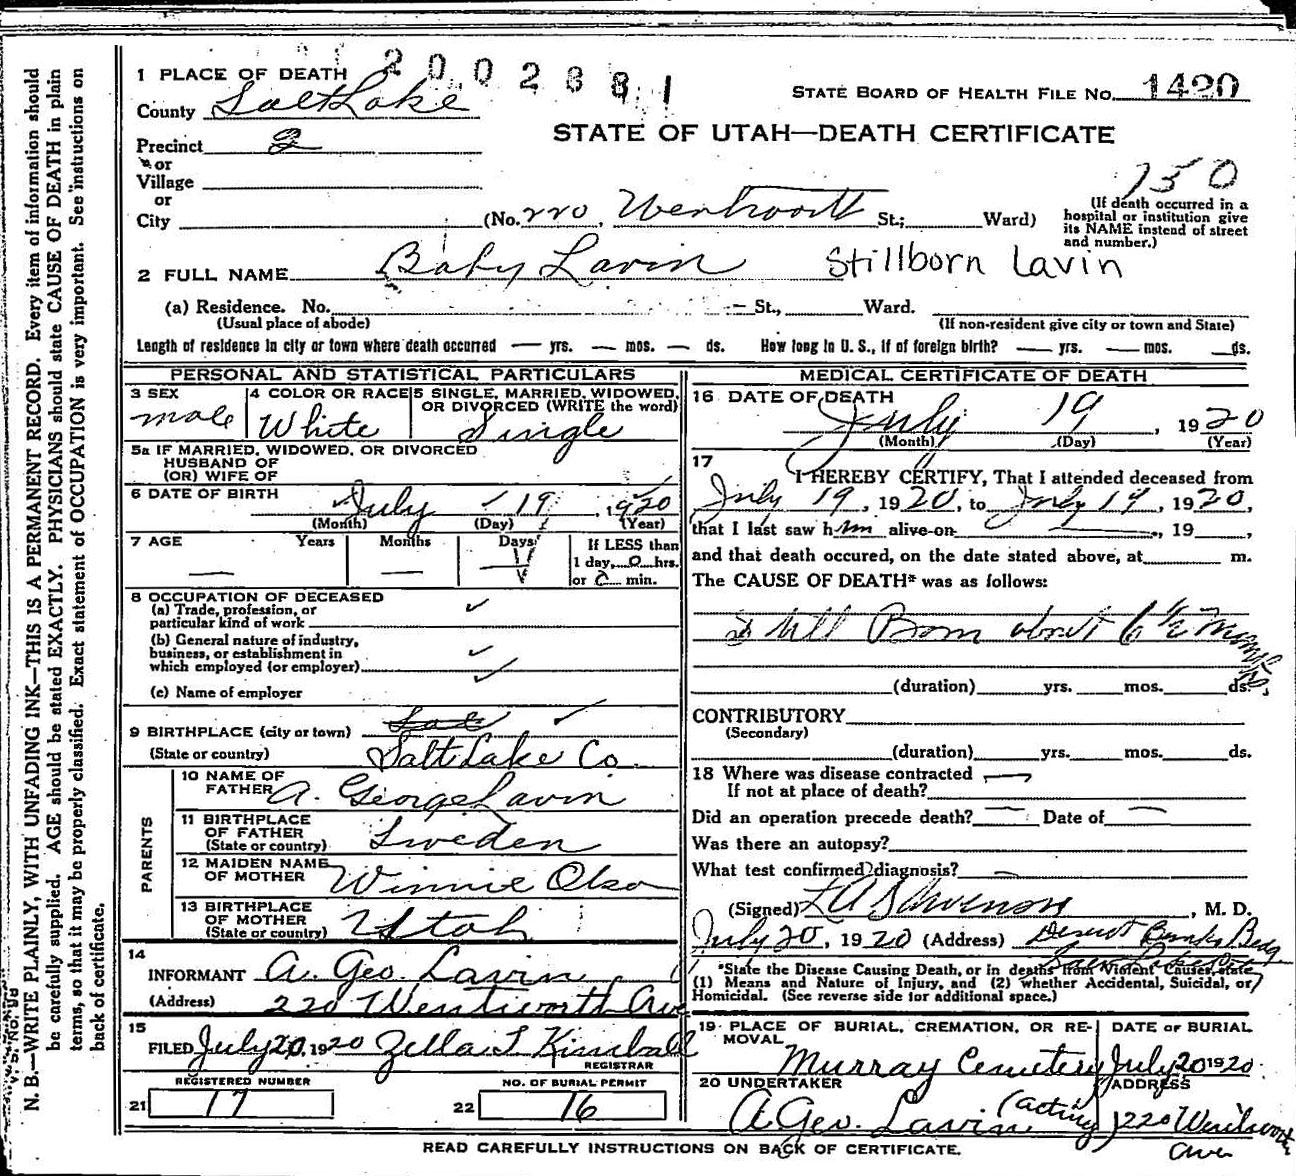 2002881
1 PLACE OF DEATH
County Salt Lake
STATE BOARD OF HEALTH FILE No. 1420
STATE OF UTAH—DEATH CERTIFICATE
Precinct 2
or
Village
or
City (No. 220, Wentworth St.; Ward)
150
(If death occurred in a
hospital or institution give
its NAME instead of street
and number.)
2 FULL NAME Baby Lavin Stillborn Lavin
(a) Residence. No. St., Ward.
(Usual place of abode) (If non-resident give city or town and State)
Length of residence in city or town where death occurred — yrs. — mos. — ds. How long in U. S., if of foreign birth? — yrs. — mos. — ds.
PERSONAL AND STATISTICAL PARTICULARS
3 SEX male
4 COLOR OR RACE White
5 SINGLE, MARRIED, WIDOWED,
OR DIVORCED (WRITE the word)
Single
5a IF MARRIED, WIDOWED, OR DIVORCED
HUSBAND OF
(OR) WIFE OF
6 DATE OF BIRTH July 19, 1920
(Month) (Day) (Year)
7 AGE Years Months Days If LESS than
1 day, 0 hrs.
or 0 min.
8 OCCUPATION OF DECEASED
(a) Trade, profession, or
particular kind of work
(b) General nature of industry,
business, or establishment in
which employed (or employer)
(c) Name of employer
9 BIRTHPLACE (city or town)
(State or country) Salt Lake Co.
PARENTS
10 NAME OF
FATHER A. George Lavin
11 BIRTHPLACE
OF FATHER
(State or country) Sweden
12 MAIDEN NAME
OF MOTHER Winnie Olson
13 BIRTHPLACE
OF MOTHER
(State or country) Utah
14
INFORMANT A. Geo. Lavin
(Address) 220 Wentworth Ave
15
FILED July 20, 1920 Zella T Kimball
REGISTRAR
REGISTERED NUMBER
21 17
NO. OF BURIAL PERMIT
22 16
MEDICAL CERTIFICATE OF DEATH
16 DATE OF DEATH
July 19, 1920
(Month) (Day) (Year)
17
I HEREBY CERTIFY, That I attended deceased from
July 19, 1920, to July 19, 1920,
that I last saw him alive on , 19 ,
and that death occured, on the date stated above, at m.
The CAUSE OF DEATH* was as follows:
Still Born about 6 1/2 months
(duration) yrs. mos. ds.
CONTRIBUTORY
(Secondary)
(duration) yrs. mos. ds.
18 Where was disease contracted
If not at place of death?
Did an operation precede death? — Date of —
Was there an autopsy?
What test confirmed diagnosis?
(Signed) , M. D.
July 20, 1920 (Address) Deseret Bank Bldg
Salt Lake
*State the Disease Causing Death, or in deaths from Violent Causes, state
(1) Means and Nature of Injury, and (2) whether Accidental, Suicidal, or
Homicidal. (See reverse side for additional space.)
19 PLACE OF BURIAL, CREMATION, OR RE-
MOVAL
Murray Cemetery
DATE OF BURIAL
July 20 1920
20 UNDERTAKER
A. Geo. Lavin (acting)
ADDRESS
220 Wentworth
Ave
READ CAREFULLY INSTRUCTIONS ON BACK OF CERTIFICATE.
N. B.—WRITE PLAINLY, WITH UNFADING INK—THIS IS A PERMANENT RECORD. Every item of information should
be carefully supplied. AGE should be stated EXACTLY. PHYSICIANS should state CAUSE OF DEATH in plain
terms, so that it may be properly classified. Exact statement of OCCUPATION is very important. See instructions on
back of certificate.